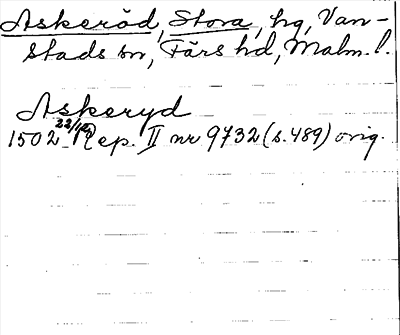 Askeröd, Stora, hg, Van-
stads sn, Färs hd, Malm. l.
Askeryd
1502 22/12 Rep. II nr 9732 (s. 489) orig.